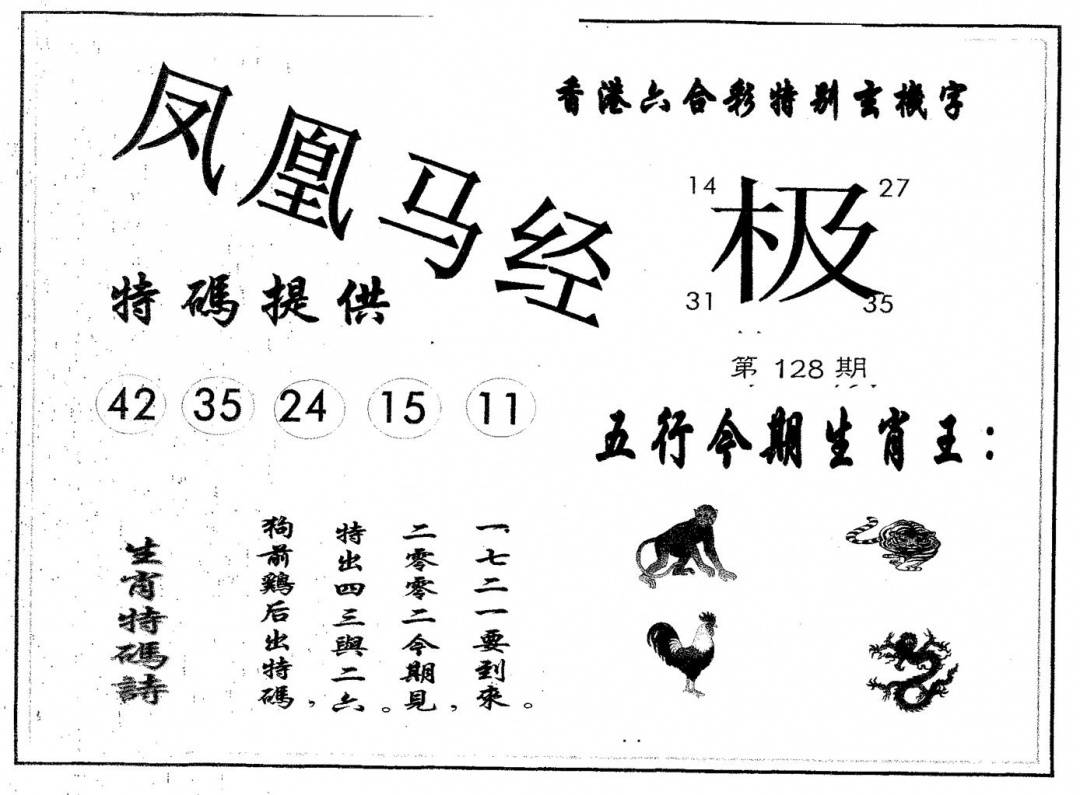 凤凰马经
香港六合彩特别玄機字
14 27
极
31 35
特碼提供
第 128 期
42 35 24 15 11
五行今期生肖王：
生肖特碼詩
狗前鷄后出特碼，
特出四三與二六。
二零零二今期見，
一七二一要到來。